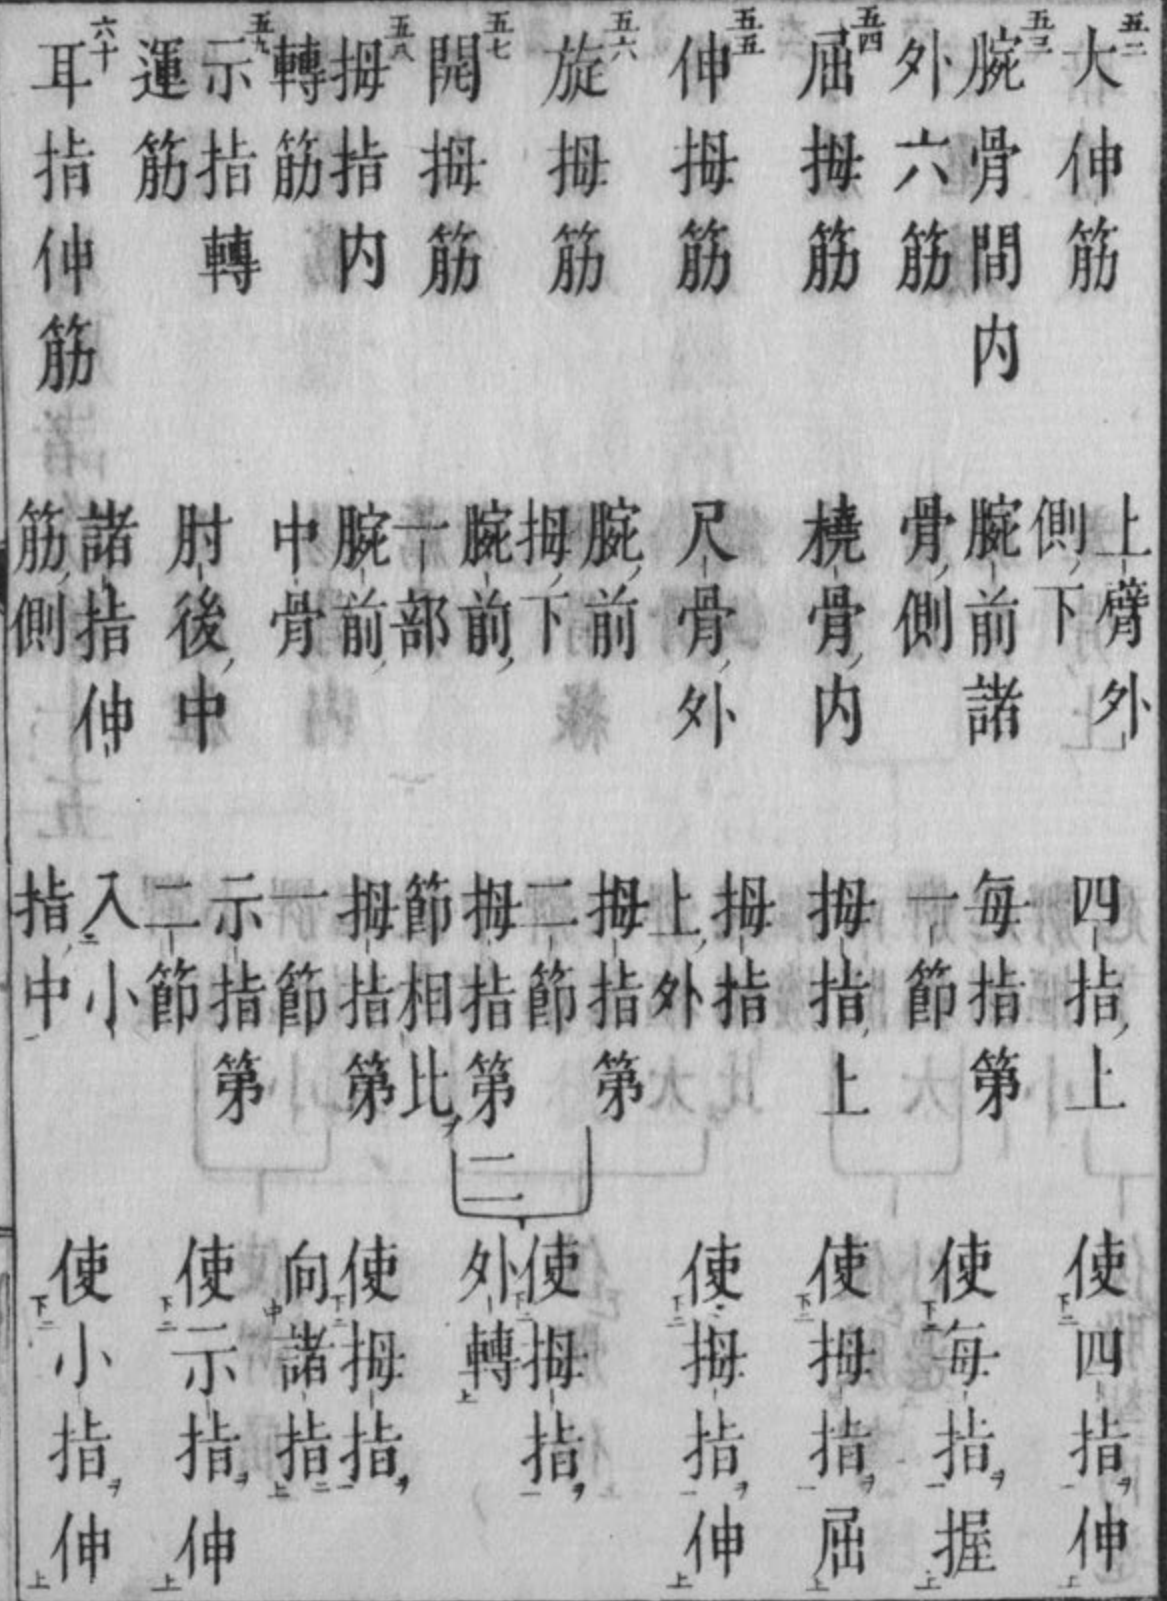 五二
大伸筋
上臂外
側下
四指上
使四指伸
五三
腕骨間内
外六筋
腕前諸
骨側
每指第
一節
使每指握
五四
屈拇筋
橈骨内
拇指上
使拇指屈
五五
伸拇筋
尺骨外
拇指
上外
使拇指伸
五六
旋拇筋
腕前
拇下
拇指第
二節
五七
開拇筋
腕前
一部
拇指第二
節相比
使拇指
外轉
五八
拇指内
轉筋
腕前
中骨
拇指第
一節
使拇指
向諸指
五九
示指轉
運筋
肘後中
示指第
二節
使示指伸
六十
耳指伸筋
諸指伸
筋側
入小
指中
使小指伸